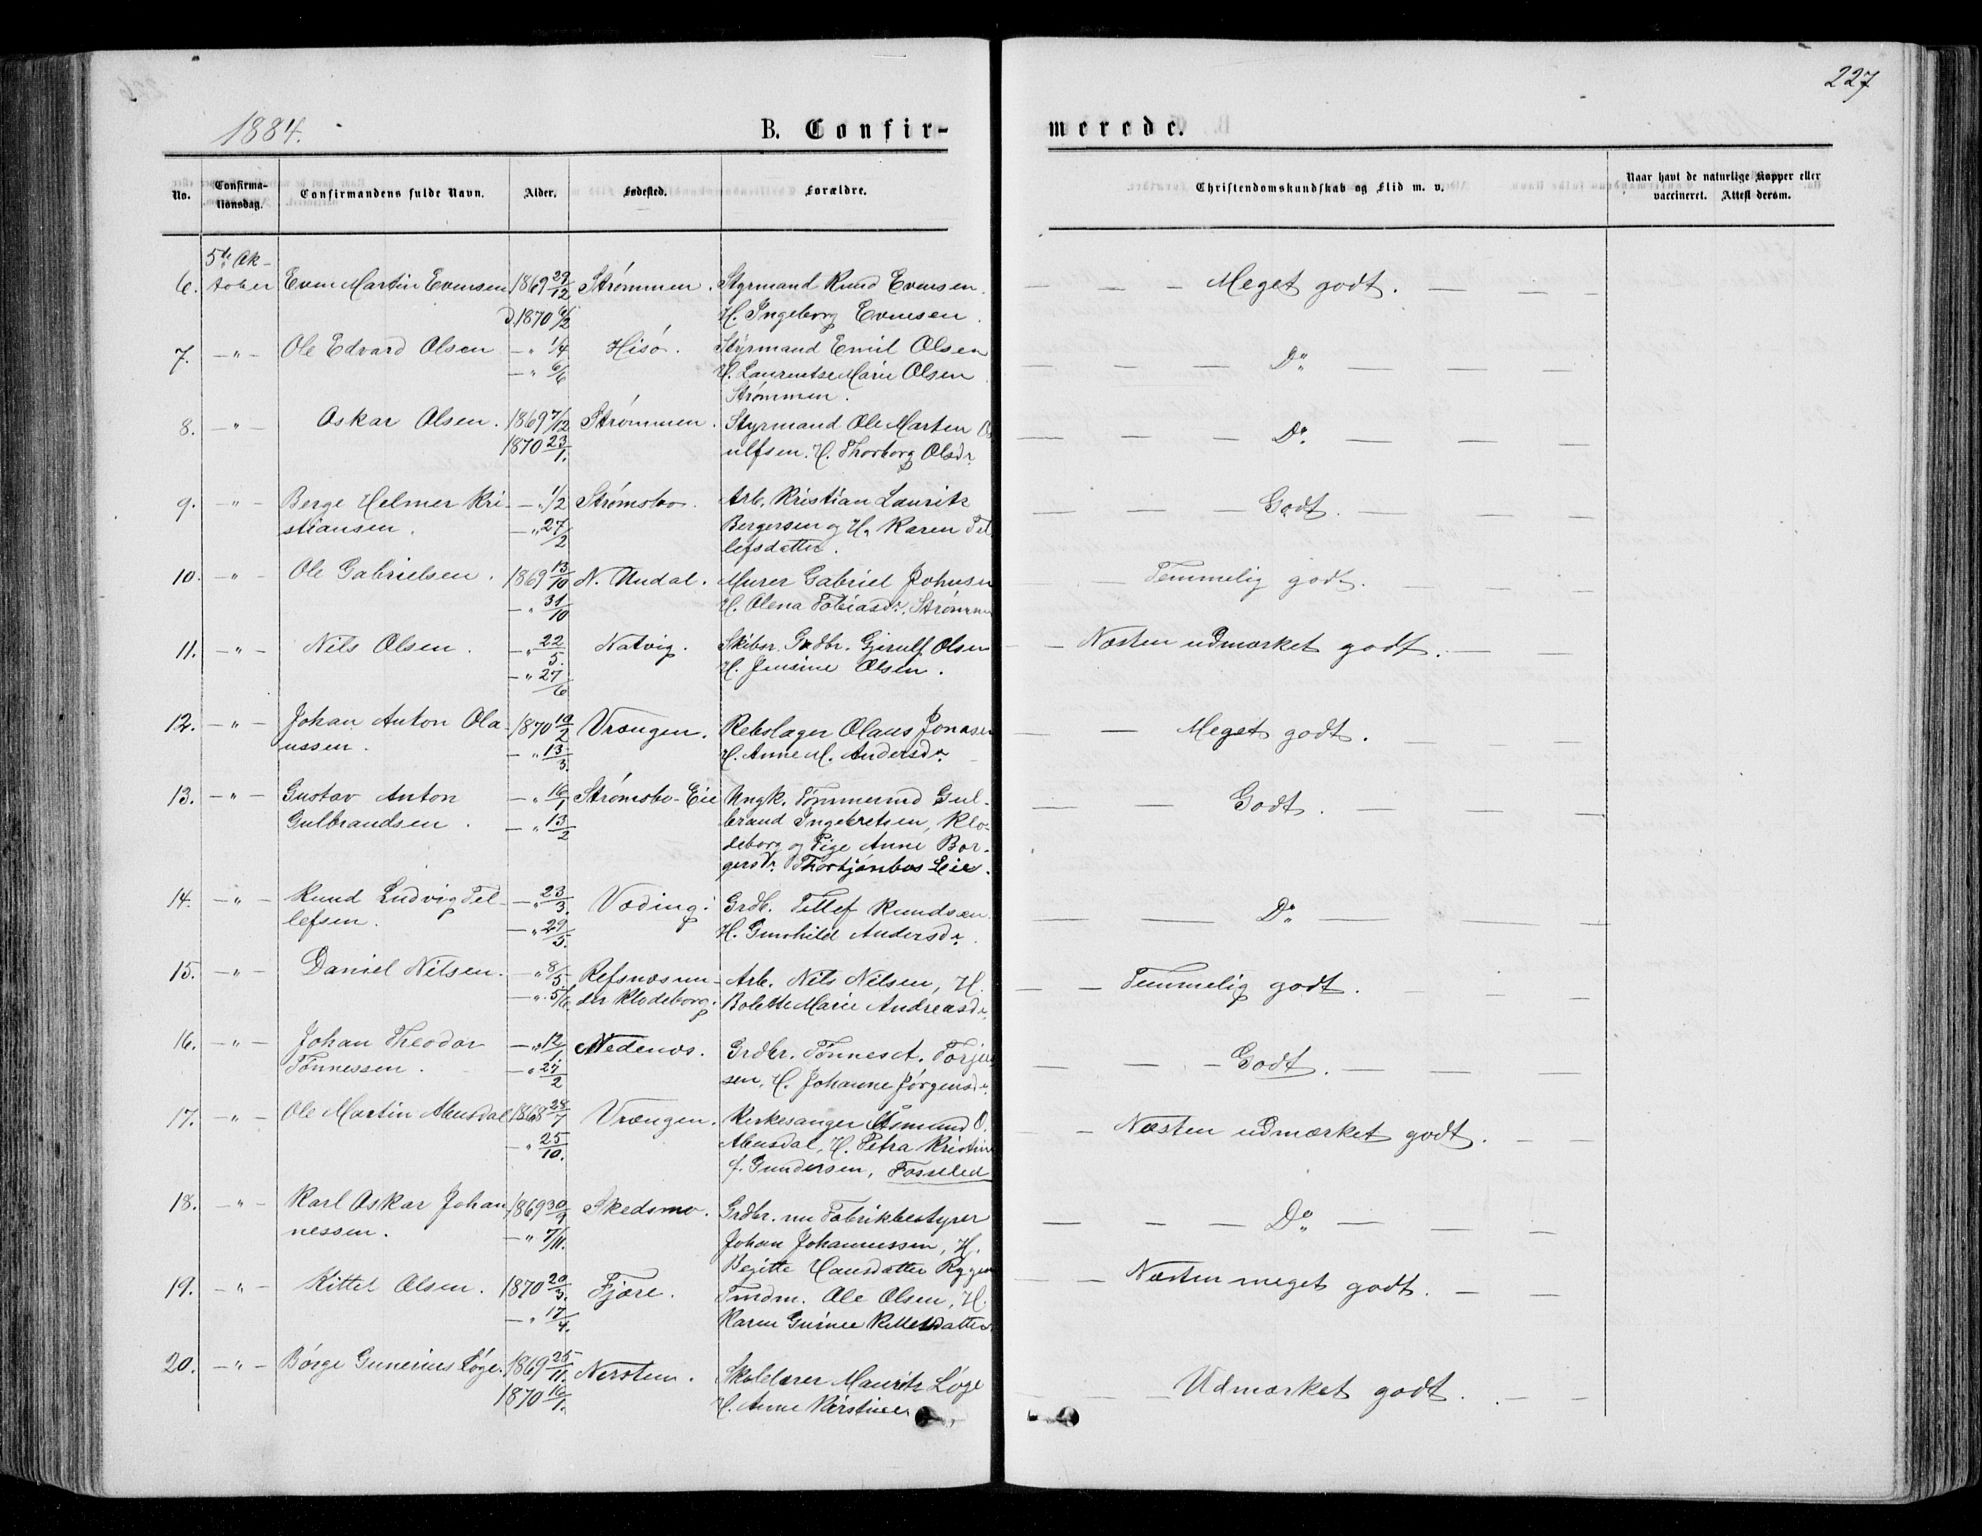 227
1884.
B. Confir-
merede.
No.
Confirma-
tionsdag.
Confirmandens fulde Navn.
Alder.
Fødested.
Forældre.
Christendomskundskab og Flid m. v.
Naar havt de naturlige Kopper eller
vaccineret. Attest derom.
5te Ok-
6. tober Even Martin Evensen 1869 29/12 Strømmen. Styrmand Knud Evensen — — — Meget godt. — — —
D. 1870 6/2 H. Ingeborg Evensen.
7. — " — Ole Edvard Olsen — " 1/4 Hisø. Styrmand Emil Olsen — — — Do — — —
— " 6/6 H. Laurentse Marie Olsen
Strømmen.
8. — " — Oskar Olsen. 1869 7/12 Strømmen. Styrmand Ole Marten — — — Do. — — —
1870 23/1. ulfsen. H. Thorborg Olsdr.
9. — " — Berge Helmer Kri- — " 1/2 Strømsbo. Arb. Kristian Laurits — — — Godt. — — —
stiansen. — " 27/2 Bergersen og H. Karen Tel
lefsdatter.
10. — " — Ole Gabrielsen. 1869 13/10 N. Undal. Murer Gabriel Johnsen — Temmelig godt. — — —
— " 31/10 H. Olena Tobiasdr. Strømmen
11. — " — Nils Olsen. — " 22/5. Natvig. Skibsr. Grdbr. Gjerulf Olsen — — Næsten udmærket godt. — — —
— " 27/6 H. Jensine Olsen.
12. — " — Johan Anton Ola- 1870 10/2 Vrængen. Rebslager Olaus Jonasen — — Meget godt. — — —
ussen. — " 13/3. H. Anne M. Andersdr.
13. — " — Gustav Anton — " 16/1 Strømsbo-Eie Ungk. Tømmermd Gul- — — — Godt. — — —
Gulbrandsen. — " 13/2 brand Ingebretsen, Klø-
deborg og Pige Anne Bor-
gersdr. Thorbjønbos Eie.
14. — " — Knud Ludvig Tel- — " 23/3. Væding. Grdb. Tellef Knudsen — — — Do — — —
lefsen. — " 27/5. H. Gunhild Andersdr.
15. — " — Daniel Nilsen. — " 8/5. Refsnæs un- Arb. Nils Nilsen, H. — — Temmelig godt. — — —
— " 5/6. der Klødeborg. Bolette Marie Andreasdr.
16. — " — Johan Theodor — " 12/1. Nedenæs. Grdbr. Tønnes A. Torje — — — Godt. — — —
Tønnessen. — " 27/2 sen, H. Johanne Jørgensdr.
17. — " — Ole Martin Abusdal 1868 28/7 Vrængen. Kirkesanger Asmund O. — — Næsten udmærket godt. —
— " 25/10. Abusdal, H. Petra Kristine
f. Gundersen, Fosselied
18. — " — Karl Oskar Johan 1869 30/9 Skedsmo. Grdbr. nu Fabrikbestyrer — — — Do — — —
nessen. — " 7/11. Johan Johannessen, H.
Begitte Hansdatter Rygen
19. — " — Kittel Olsen. 1870 20/3. Fjære. Tmdm. Ole Olsen, H. — — Næsten meget godt. — —
— " 17/4. Karen Gurine Kittelsdatter
20. — " — Børge Gunerius Løge. 1869 25/11. Nersten. Skolelærer Mauritz Løge — — — Udmærket godt. — — —
1870 16/1. H. Anne Kirstine